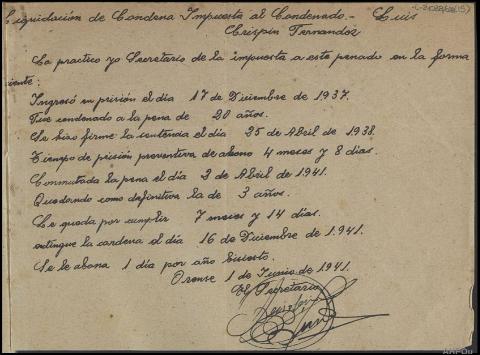 Liquidación de Condena Impuesta al Condenado.- Luis
Crispin Fernandez
La practico yo Secretario de la impuesta a este penado en la forma
iente:
Ingresó en prisión el día 17 de Diciembre de 1937.
Fué condenado a la pena de 20 años.
Se hizo firme la sentencia el día 25 de Abril de 1938.
Tiempo de prisión preventiva de abono 4 meses y 8 días.
Conmutada la pena el día 2 de Abril de 1941.
Quedando como definitiva la de 3 años.
Le queda por cumplir 7 meses y 14 días.
extingue la condena el día 16 de Diciembre de 1941.
Se le abona 1 día por año bisiesto.
Orense 1 de Junio de 1941.
El Secretario
AHPOu